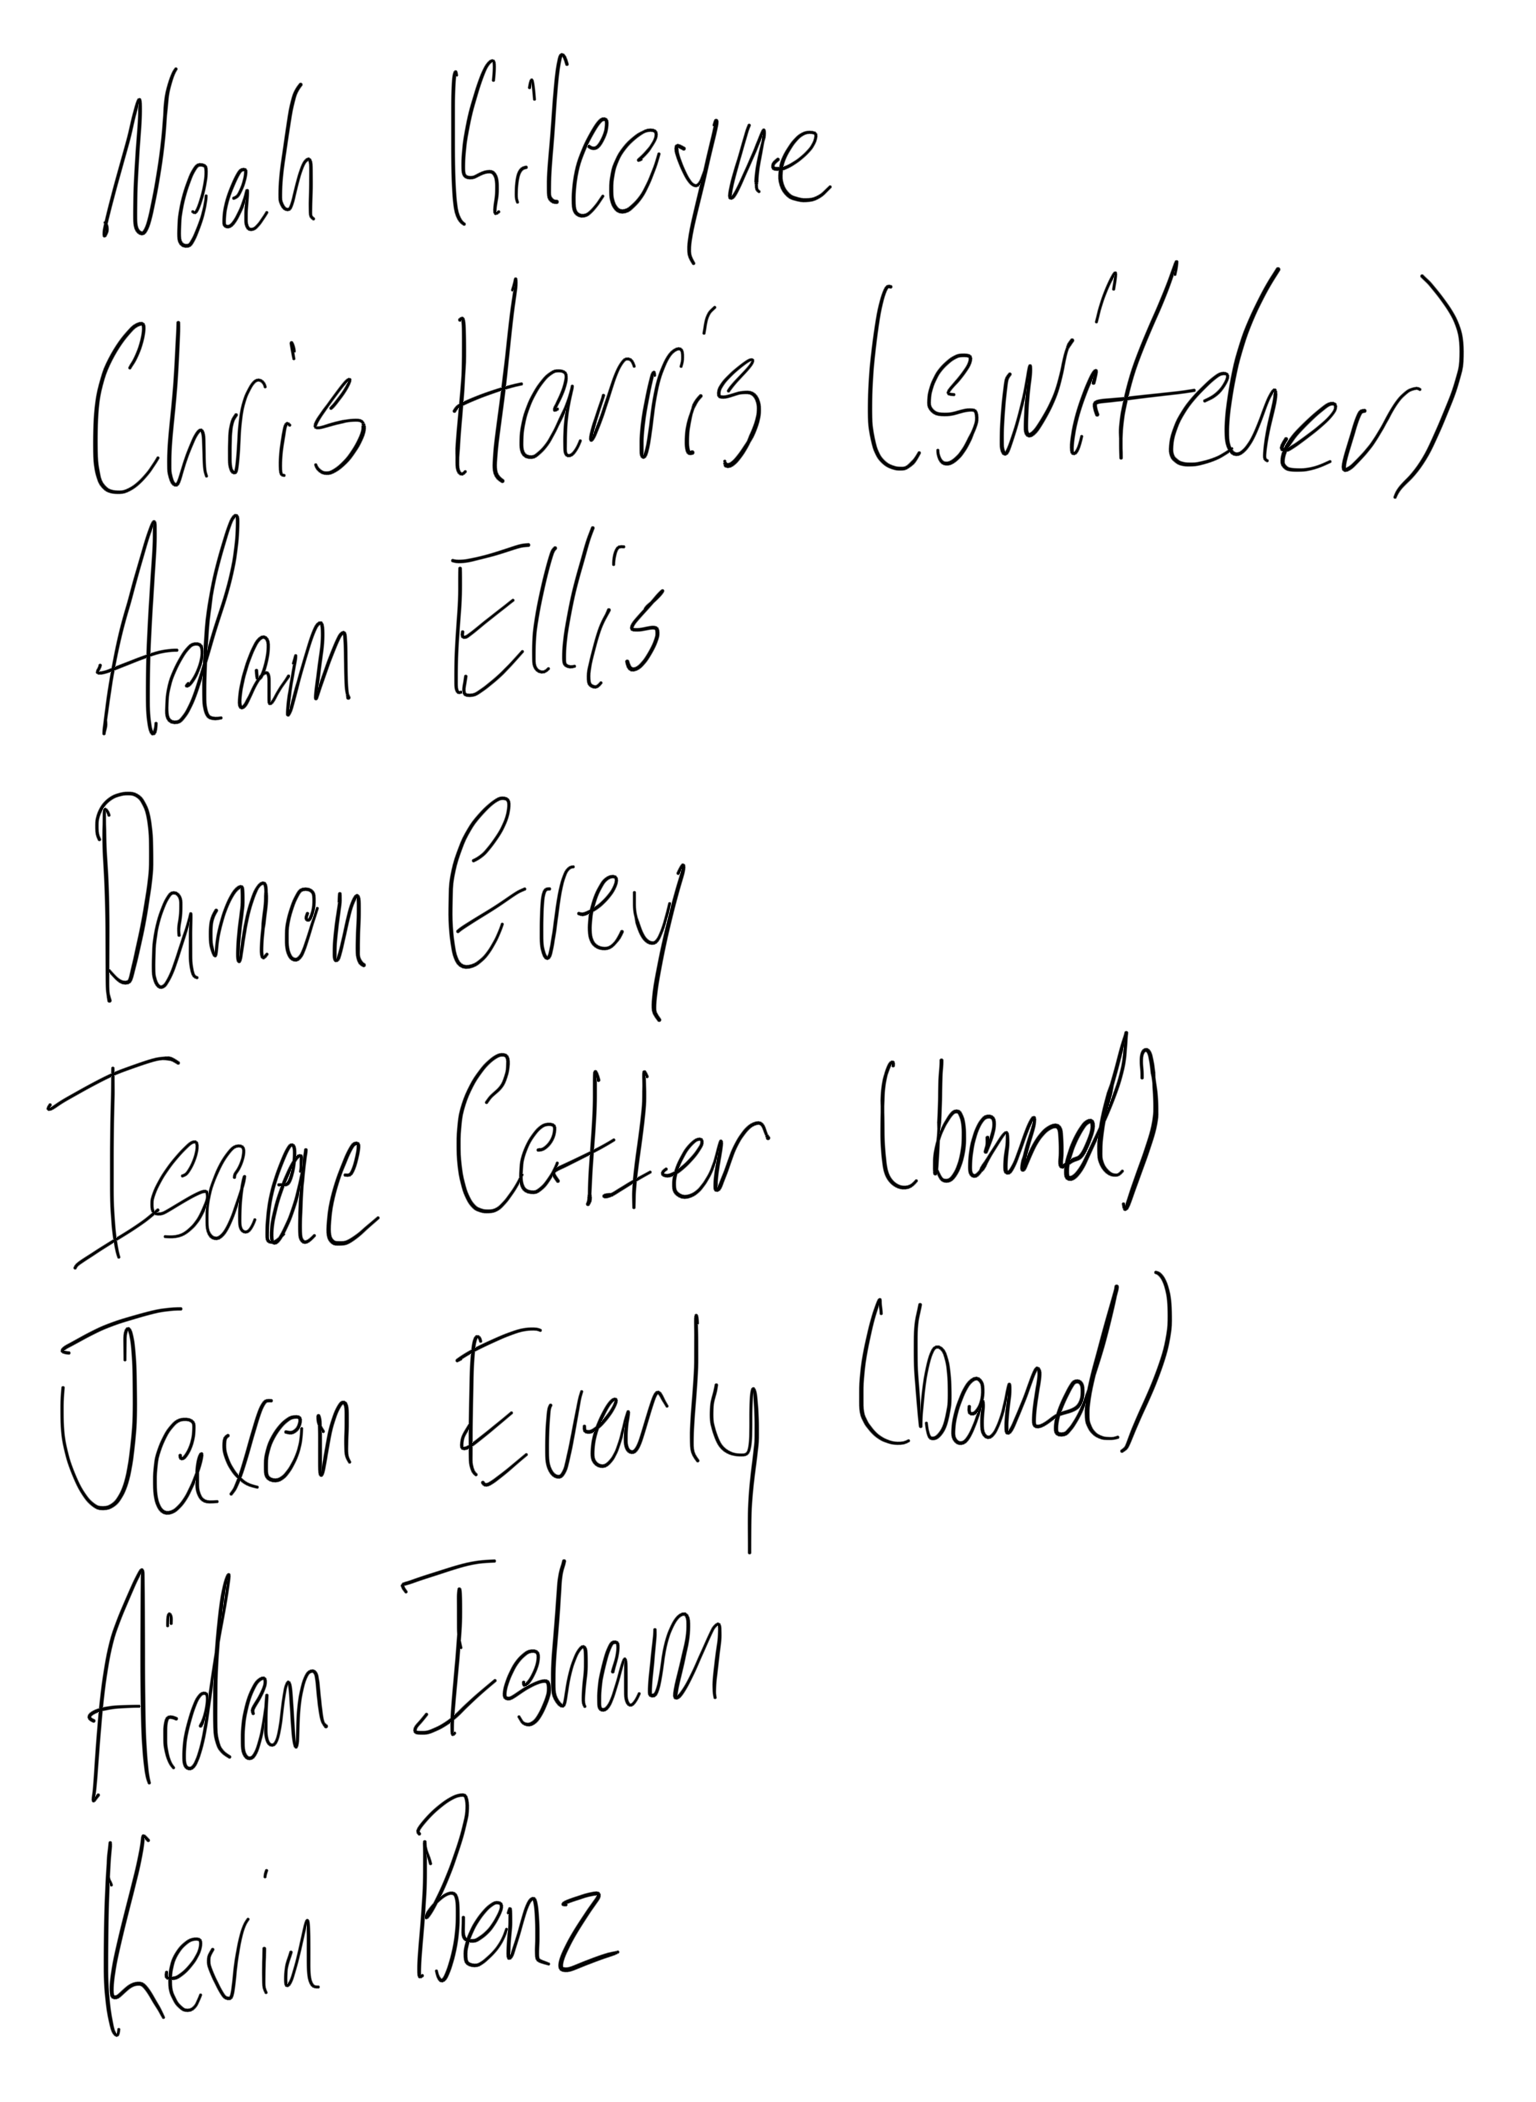 Noah Kilcoyne
Chris Harris (switcher)
Adam Ellis
Damon Erey
Isaac Cotter (band)
Jaxon Everly (band)
Aidan Isham
Kevin Benz